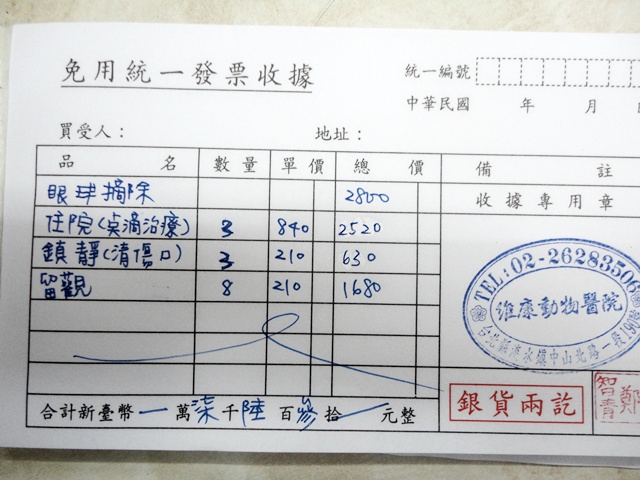 免用統一發票收據
統一編號
中華民國 年 月
買受人： 地址：
品 名 數量 單價 總 價 備 註
眼球摘除 2800
收據專用章
住院(点滴治療) 3 840 2520
鎮靜(清傷口) 3 210 630
留觀 8 210 1680
TEL:02-26283506
維康動物醫院
合計新臺幣 一 萬 柒 千 陸 百 參 拾 元整
銀貨兩訖
鄭
智
青